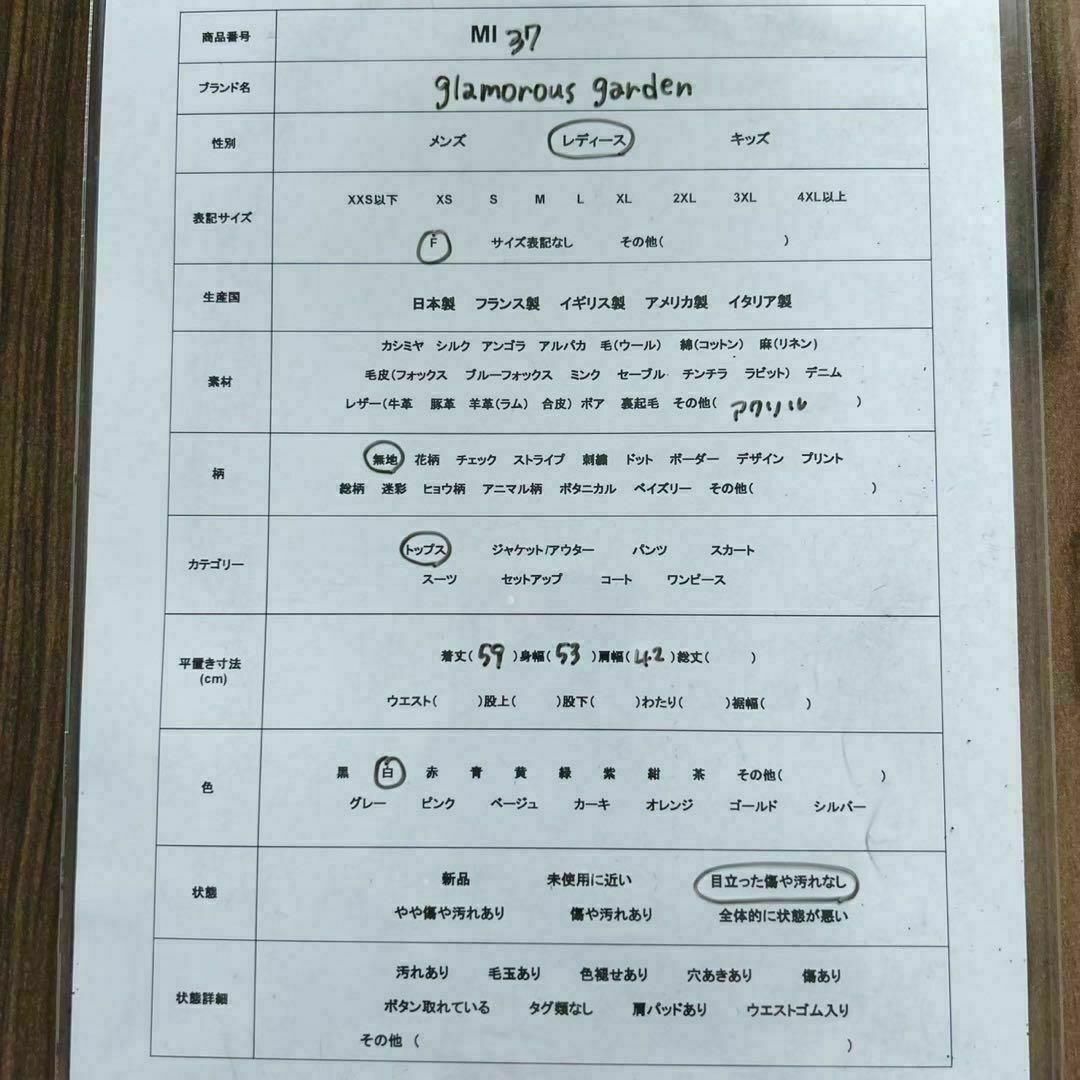 商品番号 MI 37
ブランド名 glamorous garden
性別 メンズ レディース キッズ
表記サイズ XXS以下 XS S M L XL 2XL 3XL 4XL以上
F サイズ表記なし その他( )
生産国 日本製 フランス製 イギリス製 アメリカ製 イタリア製
素材 カシミヤ シルク アンゴラ アルパカ 毛(ウール) 綿(コットン) 麻(リネン)
毛皮(フォックス ブルーフォックス ミンク セーブル チンチラ ラビット) デニム
レザー(牛革 豚革 羊革(ラム) 合皮) ボア 裏起毛 その他( アクリル )
柄 無地 花柄 チェック ストライプ 刺繍 ドット ボーダー デザイン プリント
総柄 迷彩 ヒョウ柄 アニマル柄 ボタニカル ペイズリー その他( )
カテゴリー トップス ジャケット/アウター パンツ スカート
スーツ セットアップ コート ワンピース
平置き寸法 (cm) 着丈( 59 )身幅( 53 )肩幅( 42 )総丈( )
ウエスト( )股上( )股下( )わたり( )裾幅( )
色 黒 白 赤 青 黄 緑 紫 紺 茶 その他( )
グレー ピンク ベージュ カーキ オレンジ ゴールド シルバー
状態 新品 未使用に近い 目立った傷や汚れなし
やや傷や汚れあり 傷や汚れあり 全体的に状態が悪い
状態詳細 汚れあり 毛玉あり 色褪せあり 穴あきあり 傷あり
ボタン取れている タグ類なし 肩パッドあり ウエストゴム入り
その他 ( )